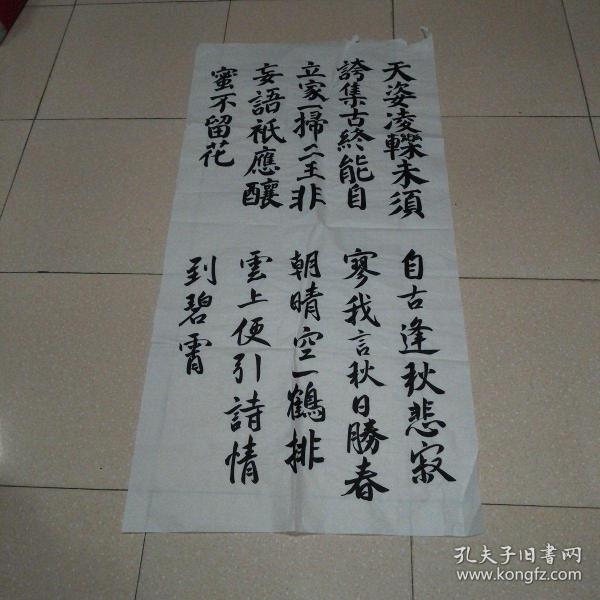 天姿凌轢未須
誇集古終能自
立家一掃二王非
妄語祇應釀
蜜不留花
自古逢秋悲寂
寥我言秋日勝春
朝晴空一鶴排
雲上便引詩情
到碧霄
孔夫子旧书网
www.kongfz.com